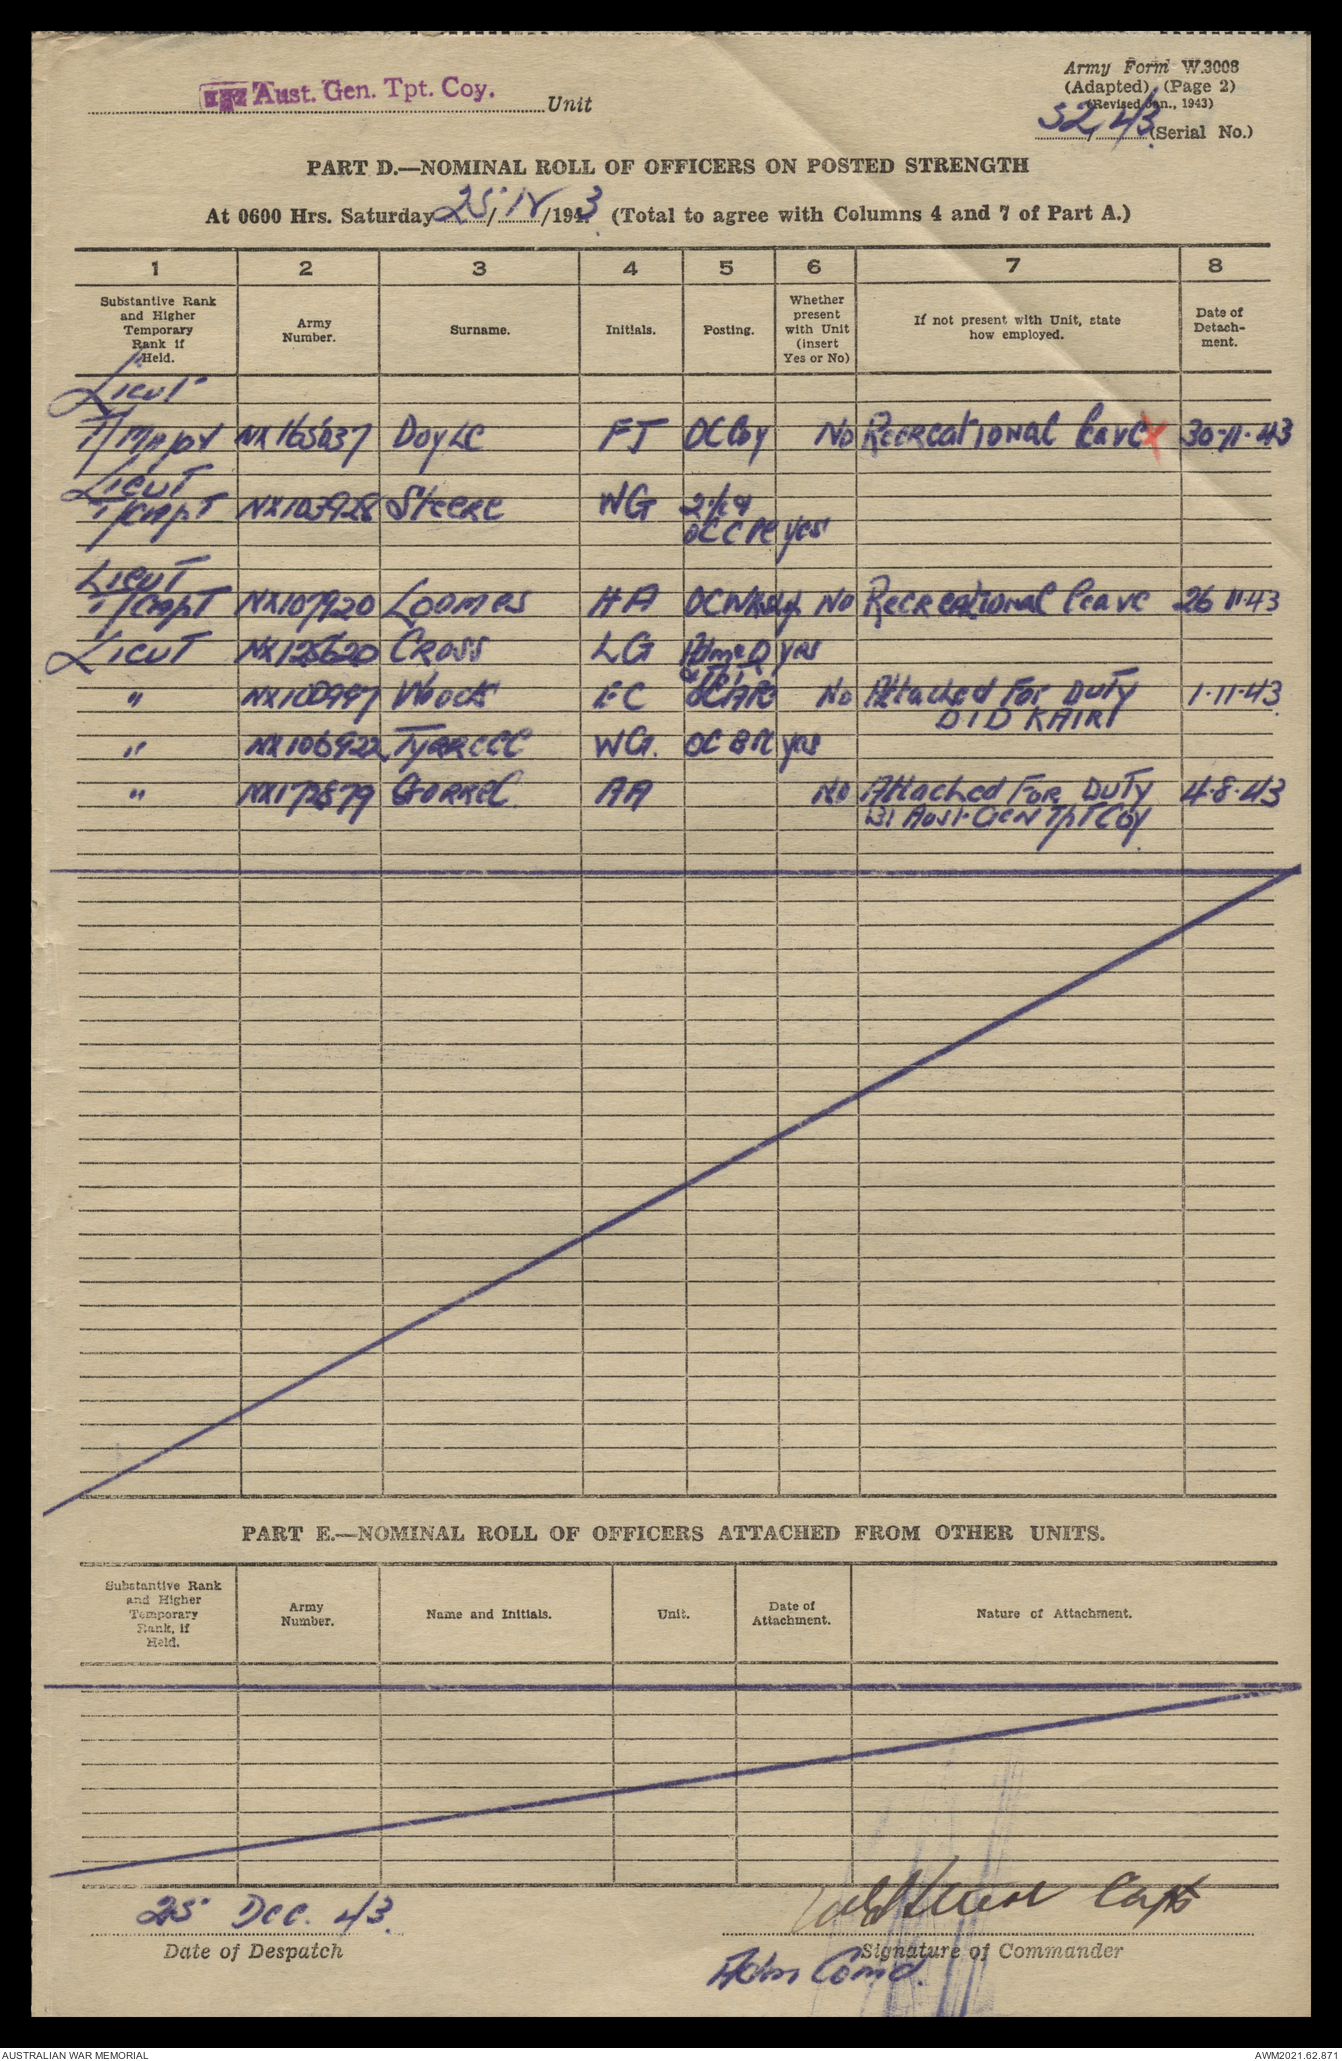 Aust. Gen. Tpt. Coy. Unit
Army Form W.3008
(Adapted) (Page 2)
(Revised Jan., 1943)
52/43 (Serial No.)
PART D.—NOMINAL ROLL OF OFFICERS ON POSTED STRENGTH
At 0600 Hrs. Saturday 25/12/1943 (Total to agree with Columns 4 and 7 of Part A.)
1 2 3 4 5 6 7 8
Substantive Rank and Higher Temporary Rank if Held.
Army Number.
Surname.
Initials.
Posting.
Whether present with Unit (insert Yes or No)
If not present with Unit, state how employed.
Date of Detachment.
Lieut
T/Major NX165037 Doyle FJ OC Coy No Recreational leave X 30-11-43
Lieut
T/Capt NX103928 Steere WG 2i/c &
OC C Pl yes
Lieut
T/Capt NX107920 Loomes HA OC Wkshp No Recreational leave 26 11.43
Lieut NX128620 Cross LG yes
" NX100997 Woods EC No Attached For Duty 1.11.43
DID KAIRI
" NX106922 Tyrrell WG. OC B Pl yes
" NX172879 Gorrel AA No Attached For Duty 4.8.43
131 Aust. Gen Tpt Coy.
PART E.—NOMINAL ROLL OF OFFICERS ATTACHED FROM OTHER UNITS.
Substantive Rank and Higher Temporary Rank, if Held.
Army Number.
Name and Initials.
Unit.
Date of Attachment.
Nature of Attachment.
25 Dec. 43. Capt
Date of Despatch Signature of Commander
Adm Comd.
AUSTRALIAN WAR MEMORIAL AWM2021.62.871